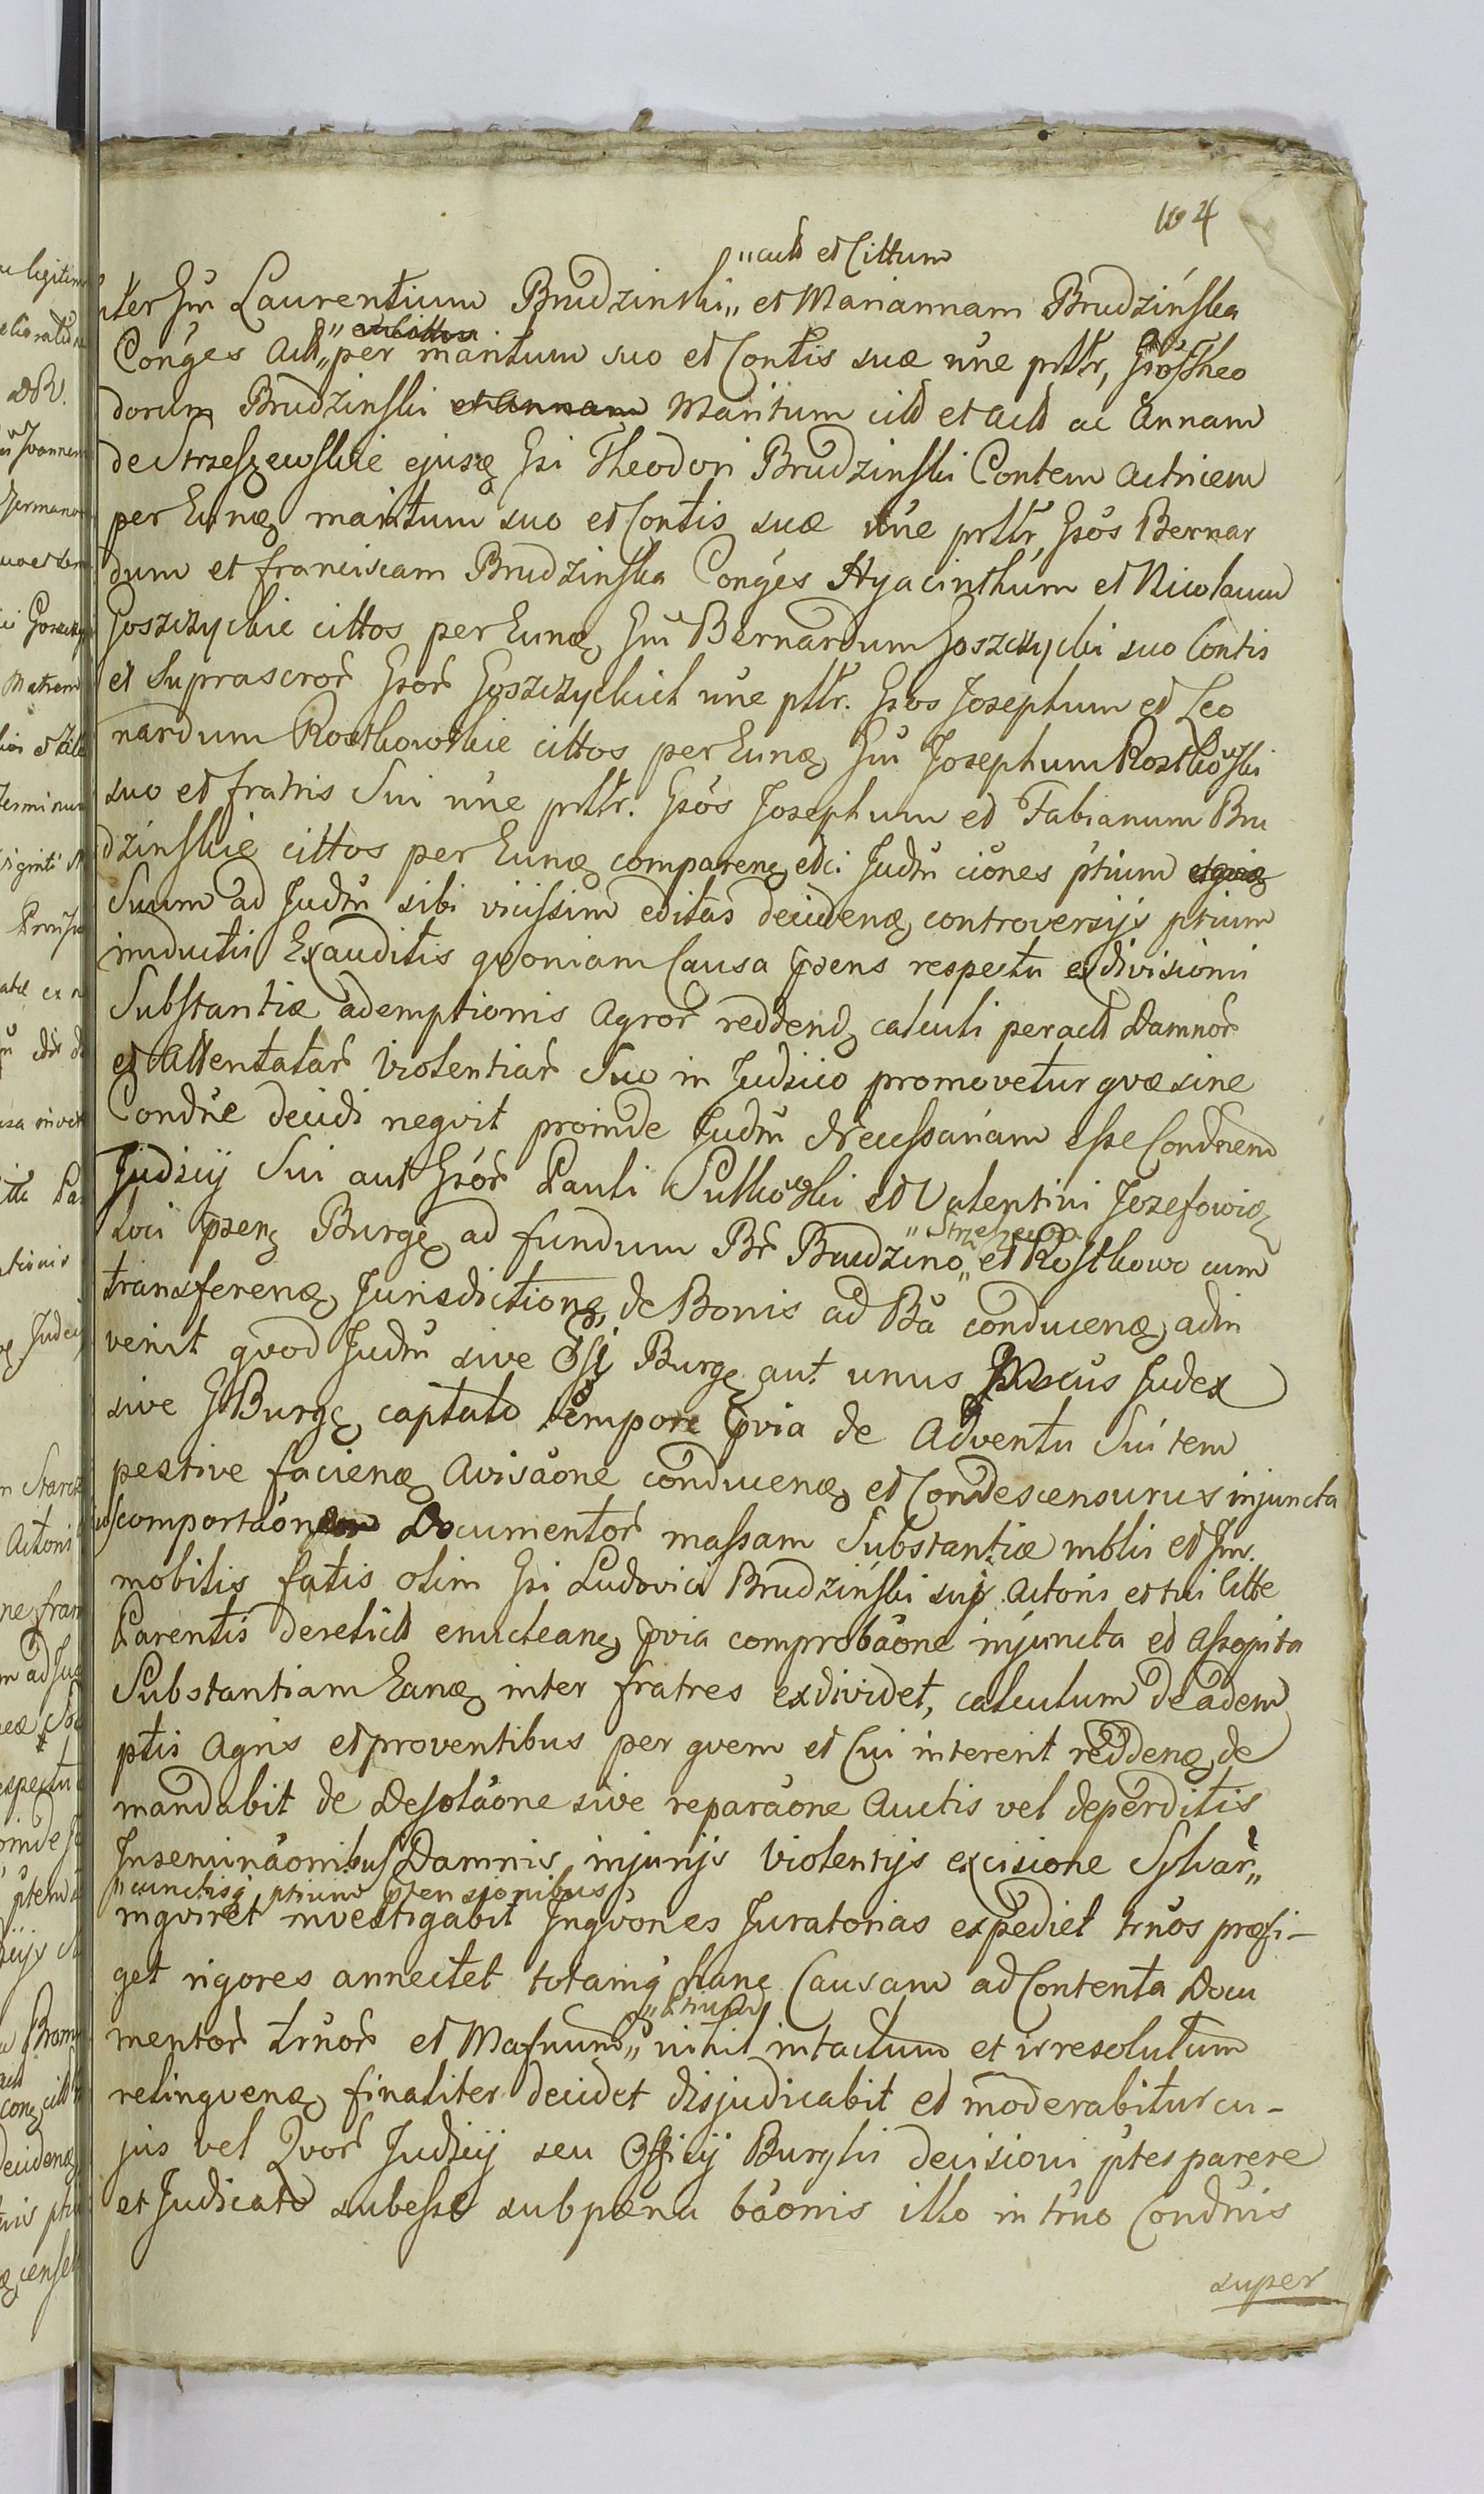 104
"actt et Cittum
Inter Gsm Laurentium Brudzinski" et Mariannam Brudzińska
Conges Actt" per maritum suo et Contis suæ nñe prttr, Gsos Theo
dorum Brudzinski et Annam Maritum citt et actt ac Annam
de Strzeszewskie ejusq Gsi Theodori Brudzinski Contem actricem
per Eunq maritum suo et Contis suæ nñe prttr, Gsos Bernar
dum et franciscam Brudzinska Conges Hyacinthum et Nicolaum
Goszczyckie cittos per Eunq Gsm Bernardum Goszczycki suo Contis
et suprascror Gsor Goszczyckich nñe pttr. Gsos Josephum et Leo
nardum Rostkowskie cittos per Eunq Gsm Josephum Rostkowski
suo et fratris Sui nñe prttr. Gsos Josephum et Fabianum Bru
dzinskie cittos per Eunq comparenq edci Judm ciones ptium
Suum ad Judm sibi vicissim editas decidenq controversijs ptium
inductis Exauditis qvoniam Causa psens respectu exdivisionis
Substantiæ ademptionis Agror reddend calculi peractt Damnor
et Attentatar violentiar Suo in Judicio promovetur qvæ sine
Condne decidi neqvit proinde Judm Necessariam esse Condnem
Judicij Sui aut Gsor Pauli Sutkowski et Valentini Jozefowicz
"Strzeszewo
loci psenq Burgq ad fundum Br Brudzino" et Rostkowo cum
transferenq Jurisdictione de Bonis ad Ba conducenq adin
venit qvod Judm sive Burgq aut unus Judex
sive G Burgq captato tempore pvia de Adventu Sui tem
pestive facienq Avisaone conducenq et Condescensurus injuncta
comportaone Documentor massam Substantiæ mblis et Im
mobilis fatis olim Gsi Ludovici Brudziński sui Actoris et sui Citte
Parentis derelictt enucleanq pvia comprobaone injuncta et Assopita
Substantiam Eanq inter fratres exdividet, calculum de adem
ptis Agris et proventibus per qvem et Cui intererit reddenq de
mandabit de Desolaone sive reparaone Auctis vel deperditis
Inseminaonibus Damnis injurijs violentijs excisione Sylvar"
cunctisq ptium ptensionibus
inqviret investigabit Inqvones Juratorias expediet trnos præfi-
get rigores annectet totamq hanc Causam ad Contenta Docu
mentor trnor et" nihil intactum et irresolutum
relinqvenq finaliter decidet disjudicabit et moderabitur cu-
jus vel Qvor Judicij seu Officij Burglis decisioni ptes parere
et Judicato subesse sub pæna baonis illo in trno Condnis
super